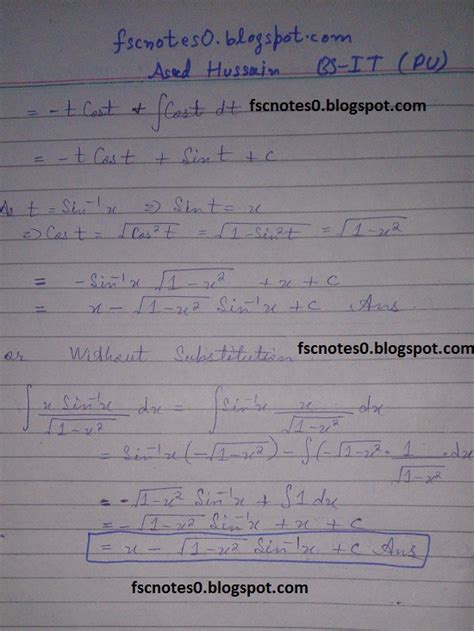 fscnotes0.blogspot.com
Asad Hussain BS-IT (PU)
= -t Cost + ∫Cost dt fscnotes0.blogspot.com
= -t Cost + Sint + c
As t = Sin⁻¹x ⇒ Sint = x
⇒ Cost = √Cos²t = √1-Sin²t = √1-x²
= -Sin⁻¹x √1-x² + x + c
= x - √1-x² Sin⁻¹x + c Ans
fscnotes0.blogspot.com
or Without Substitution
∫ x Sin⁻¹x / √1-x² dx = ∫Sin⁻¹x x / √1-x² dx
= Sin⁻¹x (-√1-x²) - ∫(-√1-x² · 1 / √1-x² · dx
= -√1-x² Sin⁻¹x + ∫1 dx
= -√1-x² Sin⁻¹x + x + c
= x - √1-x² Sin⁻¹x + c Ans
fscnotes0.blogspot.com